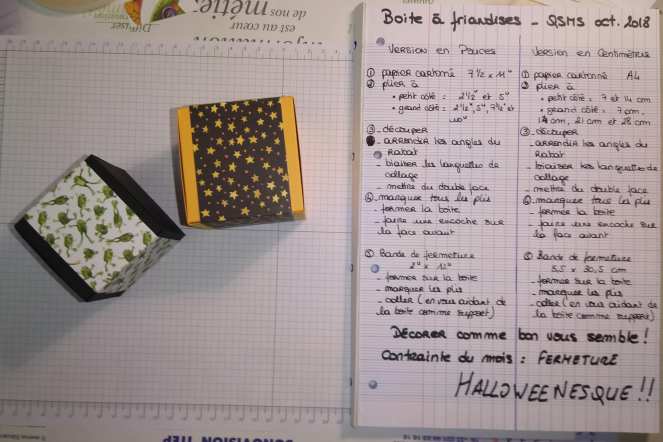 de nos
métier.
est au cœur
Diffuser
information
Boite à friandises - QSMS oct. 2018
Version en Pouces
① papier cartonné 7 1/2 x 11"
② plier à
• petit côté : 2 1/2" et 5"
• grand côté : 2 1/2", 5", 7 1/2" et
10"
③ - découper
- arrondir les angles du
Rabat
- biaiser les languettes de
collage
- mettre du double face
④ - marquer tous les plis
- fermer la boite
- faire une encoche sur
la face avant
⑤ Bande de fermeture
2" x 12"
- fermer sur la boite
- marquer les plis
- coller (en vous aidant de
la boite comme support)
Version en Centimètres
① papier cartonné A4
② plier à
• petit côté : 7 et 14 cm
• grand côté : 7 cm,
14 cm, 21 cm et 28 cm
③ - découper
- arrondir les angles du
Rabat
- biaiser les languettes de
collage
- mettre du double face
④ - marquer tous les plis
- fermer la boite
- faire une encoche sur
la face avant
⑤ Bande de fermeture
5,5 x 30,5 cm
- fermer sur la boite
- marquer les plis
- coller (en vous aidant de
la boite comme support)
Décorer comme bon vous semble !
Contrainte du mois : FERMETURE
HALLOWEENESQUE !!